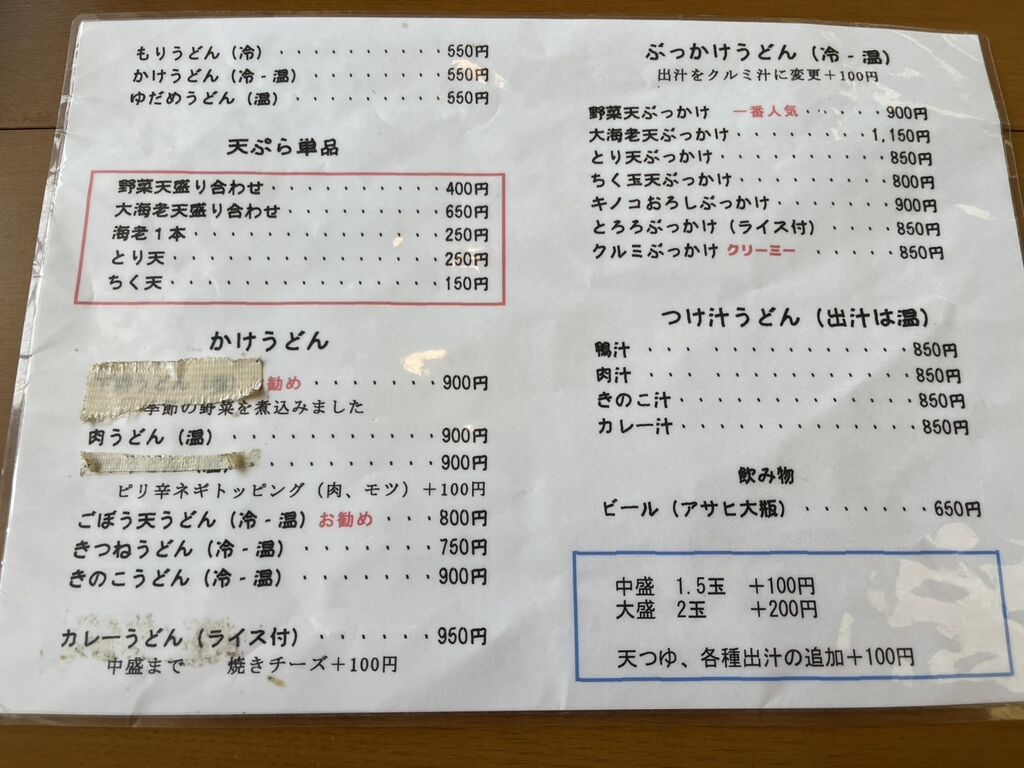 もりうどん（冷）・・・・・・・・・・550円
かけうどん（冷‐温）・・・・・・・・550円
ゆだめうどん（温）・・・・・・・・・550円
天ぷら単品
野菜天盛り合わせ・・・・・・・・・・400円
大海老天盛り合わせ・・・・・・・・・650円
海老１本・・・・・・・・・・・・・・250円
とり天・・・・・・・・・・・・・・・250円
ちく天・・・・・・・・・・・・・・・150円
かけうどん
うどん 勧め・・・・・・・900円
季節の野菜を煮込みました
肉うどん（温）・・・・・・・・・・・900円
・・・・・・・・・900円
ピリ辛ネギトッピング（肉、モツ）＋100円
ごぼう天うどん（冷‐温）お勧め・・・800円
きつねうどん（冷‐温）・・・・・・・750円
きのこうどん（冷‐温）・・・・・・・900円
カレーうどん（ライス付）・・・・・・950円
中盛まで　焼きチーズ＋100円
ぶっかけうどん（冷‐温）
出汁をクルミ汁に変更＋100円
野菜天ぶっかけ　一番人気・・・・・900円
大海老天ぶっかけ・・・・・・・・・1,150円
とり天ぶっかけ・・・・・・・・・・850円
ちく玉天ぶっかけ・・・・・・・・・800円
キノコおろしぶっかけ・・・・・・・900円
とろろぶっかけ（ライス付）・・・・850円
クルミぶっかけ クリーミー・・・・・850円
つけ汁うどん（出汁は温）
鴨汁・・・・・・・・・・・・・・・850円
肉汁・・・・・・・・・・・・・・・850円
きのこ汁・・・・・・・・・・・・・850円
カレー汁・・・・・・・・・・・・・850円
飲み物
ビール（アサヒ大瓶）・・・・・・・650円
中盛　1.5玉　＋100円
大盛　2玉　＋200円
天つゆ、各種出汁の追加＋100円